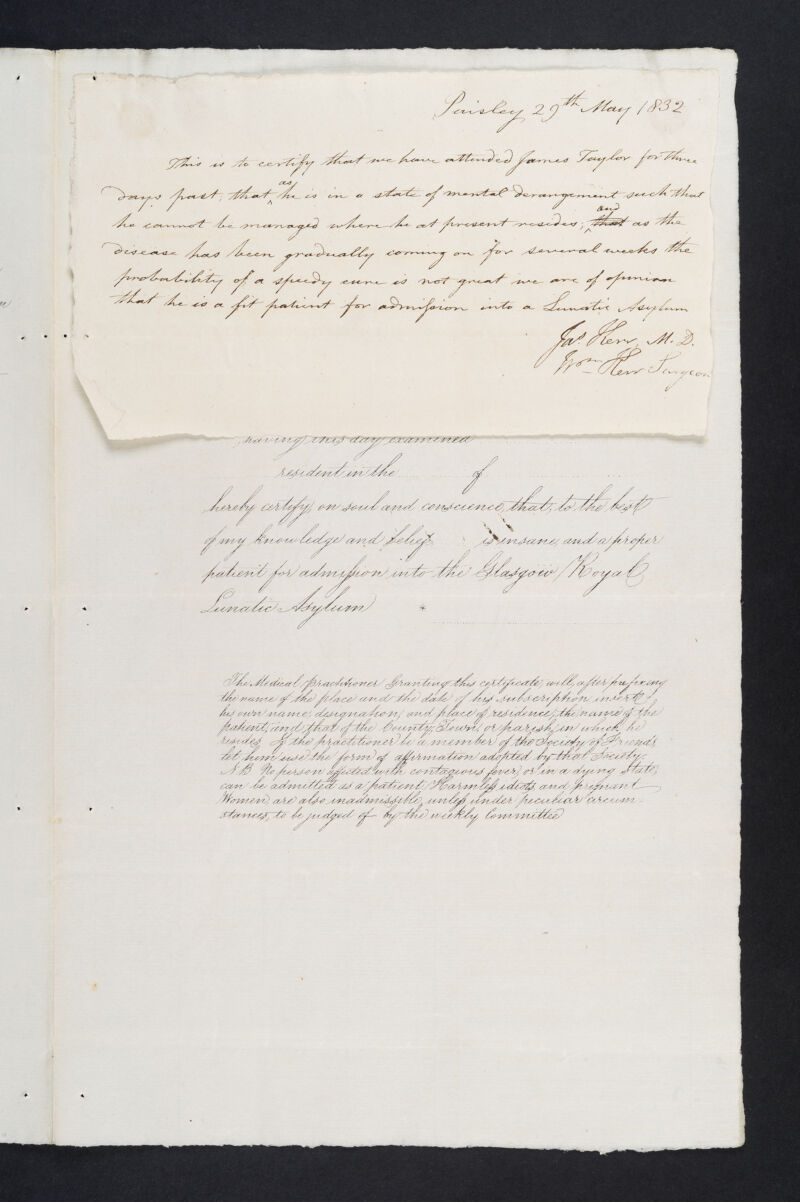 Paisley 29th May 1832
This is to certify that we have attended James Taylor for three
days past, that as he is in a state of mental derangement such that
he cannot be managed where he at present resides; that and as the
disease has been gradually coming on for several weeks the
probability of a speedy cure is not great we are of opinion
that he is a fit patient for admission into a Lunatic Asylum
Jas. Kerr, M.D.
Wm Kerr Surgeon
having this day examined
resident in the of
hereby certify, on soul and conscience, that, to the best
of my knowledge and belief is insane, and a proper
patient for admission into the Glasgow Royal
Lunatic Asylum *
The Medical Practitioner Granting this certificate, will, after prefixing
the name of the place and the date of his subscription insert
his own name, designation, and place of residence; the name of the
patient; and that of the County, Town, or parish, in which he
resides. If the practitioner be a member of the Society of Friends
let him use the form of affirmation adopted by that Society.
N.B. No person affected with contagious fever, or in a dying State,
can be admitted as a patient. Harmless idiots and pregnant
Women are also inadmissible, unless under peculiar circum-
stances, to be judged of by the weekly Committee